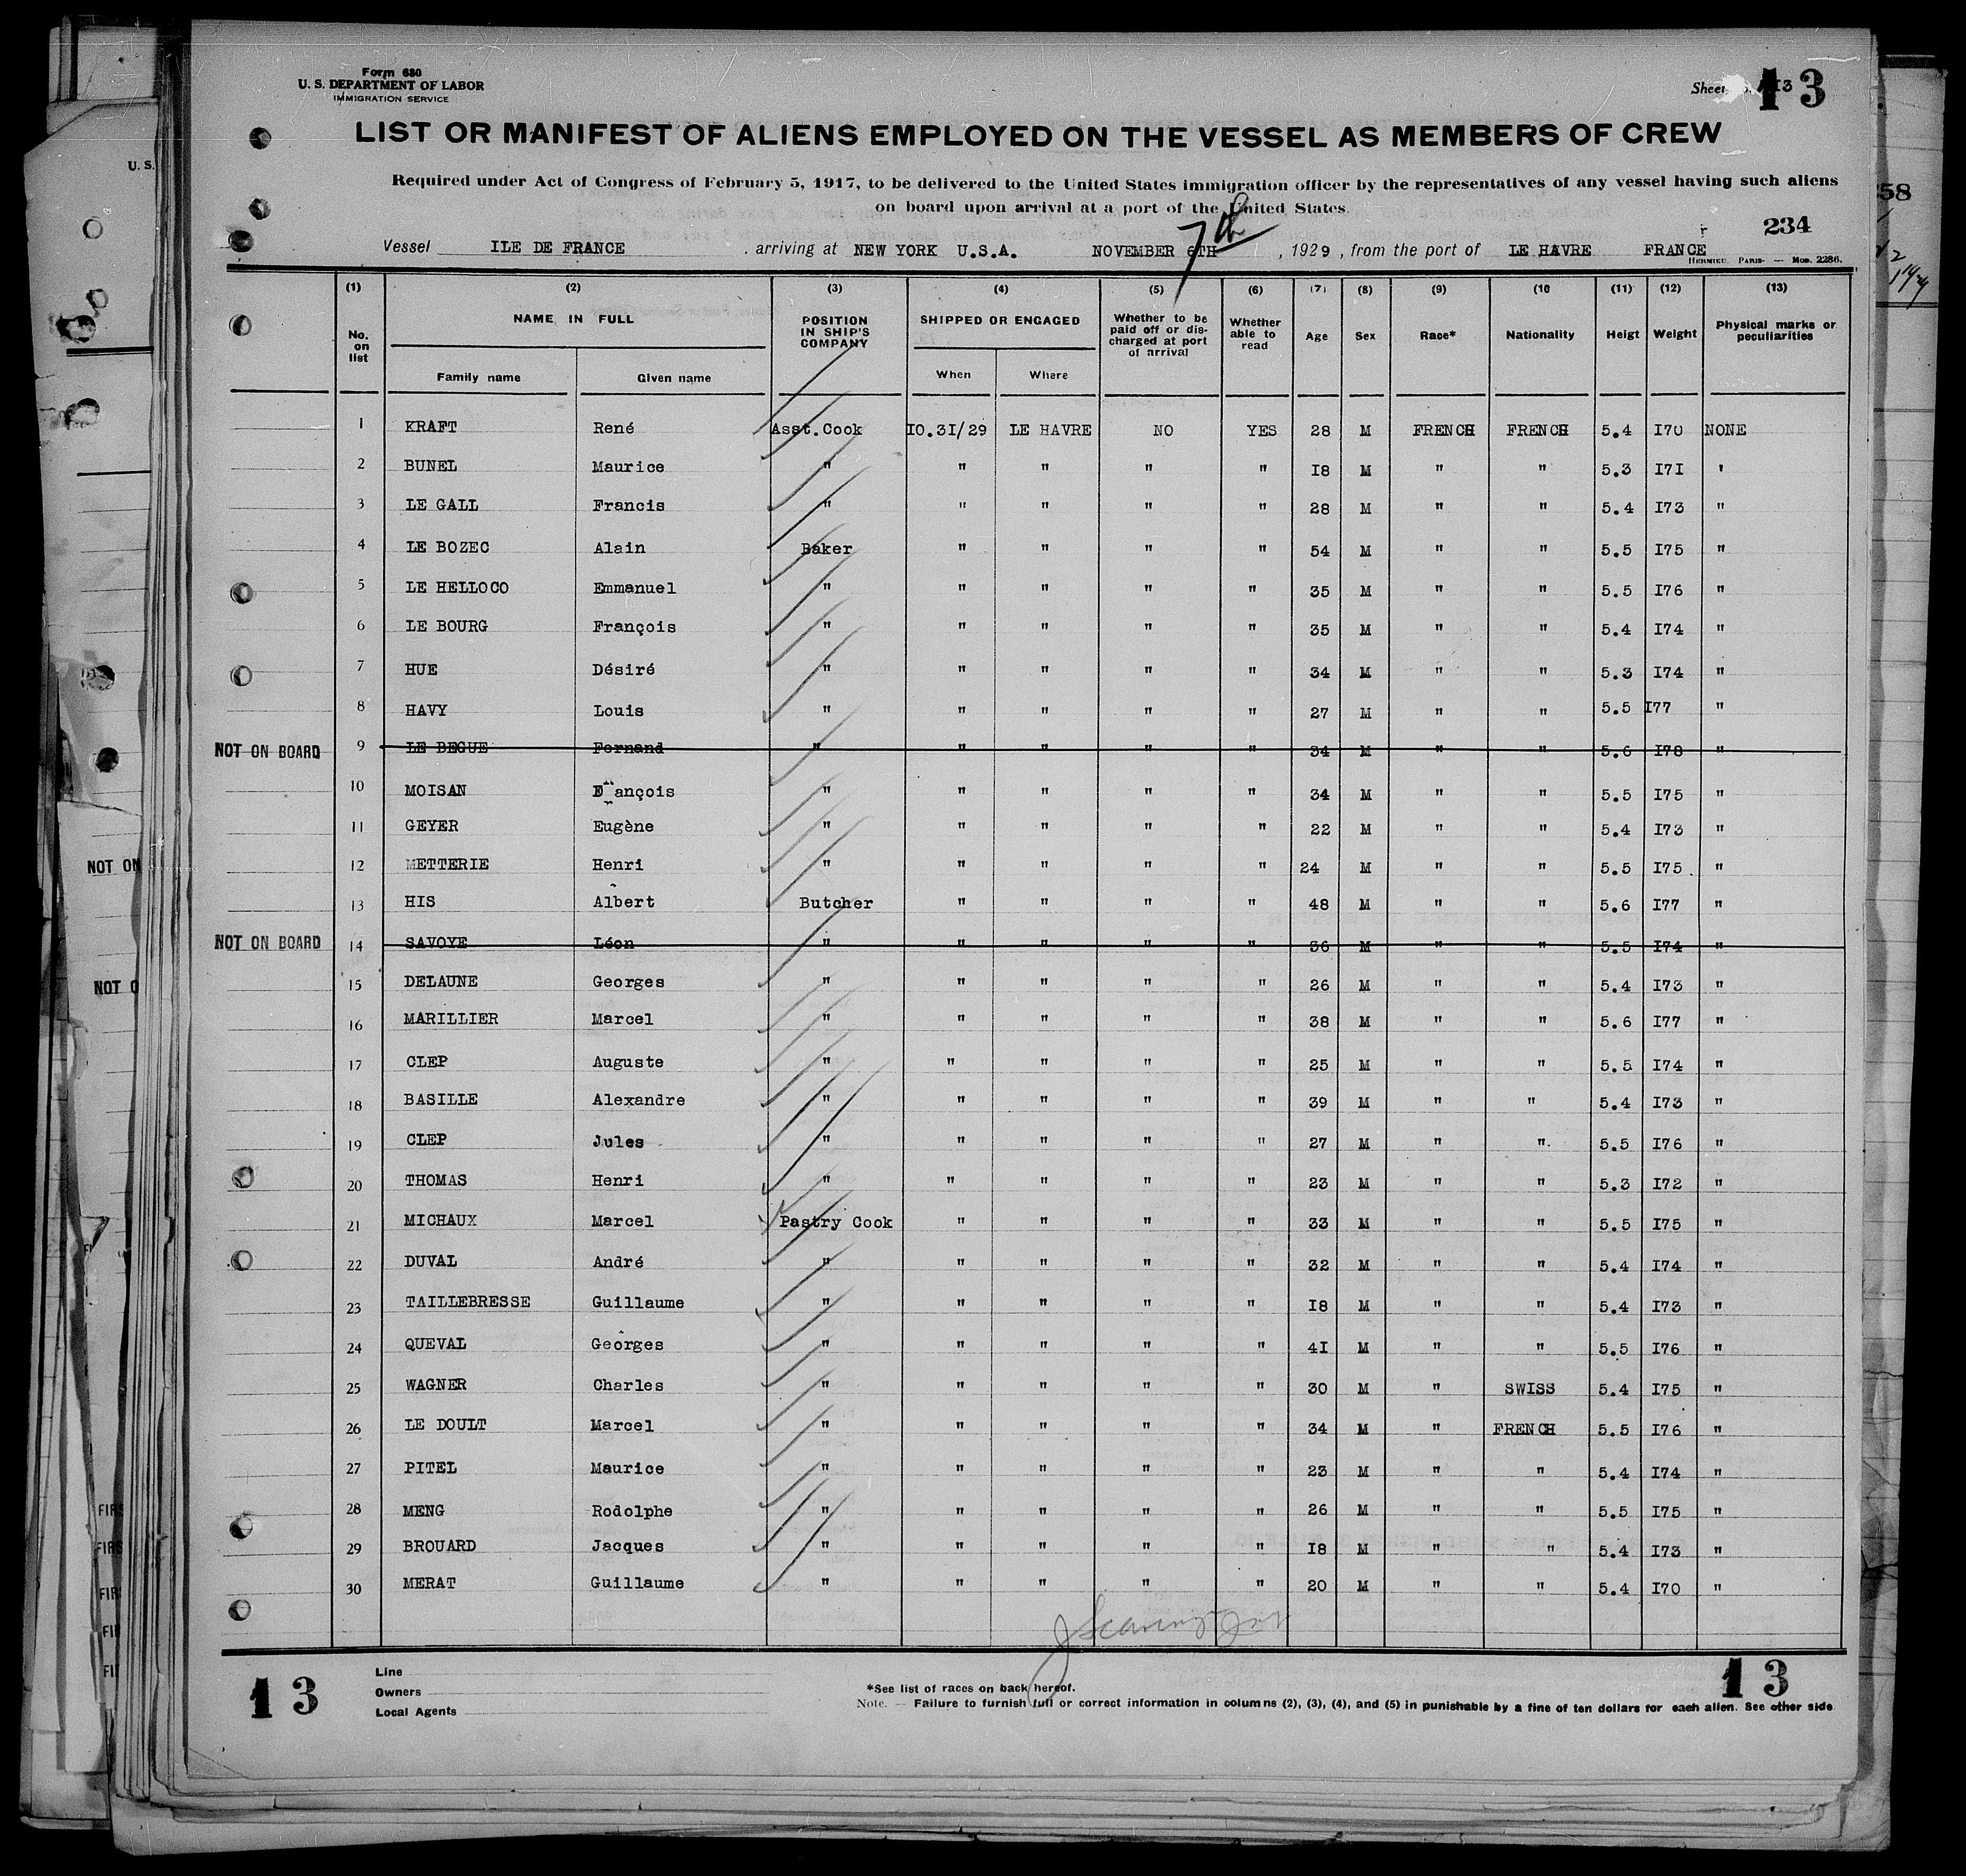 Form 680
U. S. DEPARTMENT OF LABOR
IMMIGRATION SERVICE
Sheet 13
13
LIST OR MANIFEST OF ALIENS EMPLOYED ON THE VESSEL AS MEMBERS OF CREW
Required under Act of Congress of February 5, 1917, to be delivered to the United States immigration officer by the representatives of any vessel having such aliens
on board upon arrival at a port of the United States.
234
7th
Vessel ILE DE FRANCE . arriving at NEW YORK U.S.A. NOVEMBER 6TH , 1929 , from the port of LE HAVRE FRANCE
HERMIEU. PARIS- — Mod. 2286.
(1) (2) (3) (4) (5) (6) (7) (8) (9) (10 (11) (12) (13)
No. on list NAME IN FULL Family name Given name POSITION IN SHIP'S COMPANY SHIPPED OR ENGAGED When Where Whether to be paid off or discharged at port of arrival Whether able to read Age Sex Race* Nationality Heigt Weight Physical marks or peculiarities
1 KRAFT René Asst.Cook I0.3I/29 LE HAVRE NO YES 28 M FRENCH FRENCH 5.4 I70 NONE
2 BUNEL Maurice " " " " " I8 M " " 5.3 I7I "
3 LE GALL Francis " " " " " 28 M " " 5.4 I73 "
4 LE BOZEC Alain Baker " " " " 54 M " " 5.5 I75 "
5 LE HELLOCO Emmanuel " " " " " 35 M " " 5.5 I76 "
6 LE BOURG François " " " " " 35 M " " 5.4 I74 "
7 HUE Désiré " " " " " 34 M " " 5.3 I74 "
8 HAVY Louis " " " " " 27 M " " 5.5 I77 "
NOT ON BOARD 9 LE BEGUE Fernand " " " " " 34 M " " 5.6 I78 "
10 MOISAN François " " " " " 34 M " " 5.5 I75 "
11 GEYER Eugène " " " " " 22 M " " 5.4 I73 "
12 METTERIE Henri " " " " " 24 M " " 5.5 I75 "
13 HIS Albert Butcher " " " " 48 M " " 5.6 I77 "
NOT ON BOARD 14 SAVOYE Léon " " " " " 36 M " " 5.5 I74 "
15 DELAUNE Georges " " " " " 26 M " " 5.4 I73 "
16 MARILLIER Marcel " " " " " 38 M " " 5.6 I77 "
17 CLEP Auguste " " " " " 25 M " " 5.5 I74 "
18 BASILLE Alexandre " " " " " 39 M " " 5.4 I73 "
19 CLEP Jules " " " " " 27 M " " 5.5 I76 "
20 THOMAS Henri " " " " " 23 M " " 5.3 I72 "
21 MICHAUX Marcel Pastry Cook " " " " 33 M " " 5.5 I75 "
22 DUVAL André " " " " " 32 M " " 5.4 I74 "
23 TAILLEBRESSE Guillaume " " " " " I8 M " " 5.4 I73 "
24 QUEVAL Georges " " " " " 4I M " " 5.5 I76 "
25 WAGNER Charles " " " " " 30 M " SWISS 5.4 I75 "
26 LE DOULT Marcel " " " " " 34 M " FRENCH 5.5 I76 "
27 PITEL Maurice " " " " " 23 M " " 5.4 I74 "
28 MENG Rodolphe " " " " " 26 M " " 5.5 I75 "
29 BROUARD Jacques " " " " " I8 M " " 5.4 I73 "
30 MERAT Guillaume " " " " " 20 M " " 5.4 I70 "
13
Line
Owners
Local Agents
*See list of races on back hereof.
Note. — Failure to furnish full or correct information in columns (2), (3), (4), and (5) in punishable by a fine of ten dollars for each alien. See other side
13
U. S.
NOT ON
NOT O
58